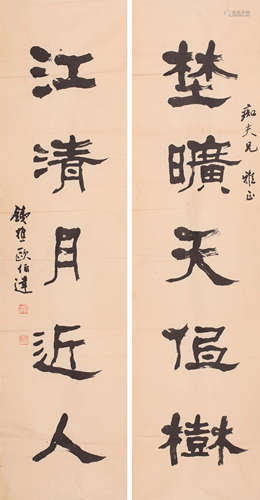 痴夫兄 雅正
埜曠天伍樹
江清月近人
鐵樵歐伯達